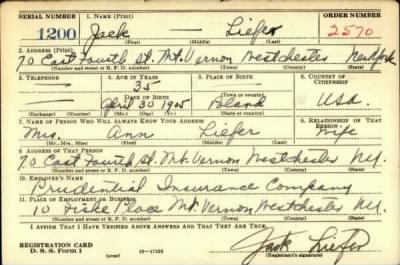 SERIAL NUMBER 1. NAME (Print) ORDER NUMBER
1200 Jack Liefer 2570
(First) (Middle) (Last)
2. ADDRESS (Print)
70 East Fourth St. Mt. Vernon Westchester New York
(Number and street or R. F. D. number) (Town) (County) (State)
3. TELEPHONE 4. AGE IN YEARS 5. PLACE OF BIRTH 6. COUNTRY OF CITIZENSHIP
35
DATE OF BIRTH
April 30 1905 Poland USA.
(Exchange) (Number) (Mo.) (Day) (Yr.) (State or country)
7. NAME OF PERSON WHO WILL ALWAYS KNOW YOUR ADDRESS 8. RELATIONSHIP OF THAT PERSON
Mrs. Ann Liefer Wife
(Mr., Mrs., Miss) (First) (Middle) (Last)
9. ADDRESS OF THAT PERSON
70 East Fourth St. Mt. Vernon Westchester N.Y.
(Number and street or R. F. D. number) (Town) (County) (State)
10. EMPLOYER'S NAME
Prudential Insurance Company
11. PLACE OF EMPLOYMENT OR BUSINESS
10 Fiske Place Mt. Vernon Westchester N.Y.
(Number and street or R. F. D. number) (Town) (County) (State)
I AFFIRM THAT I HAVE VERIFIED ABOVE ANSWERS AND THAT THEY ARE TRUE.
REGISTRATION CARD
D. S. S. Form 1 (over) Jack Liefer
(Registrant's signature)